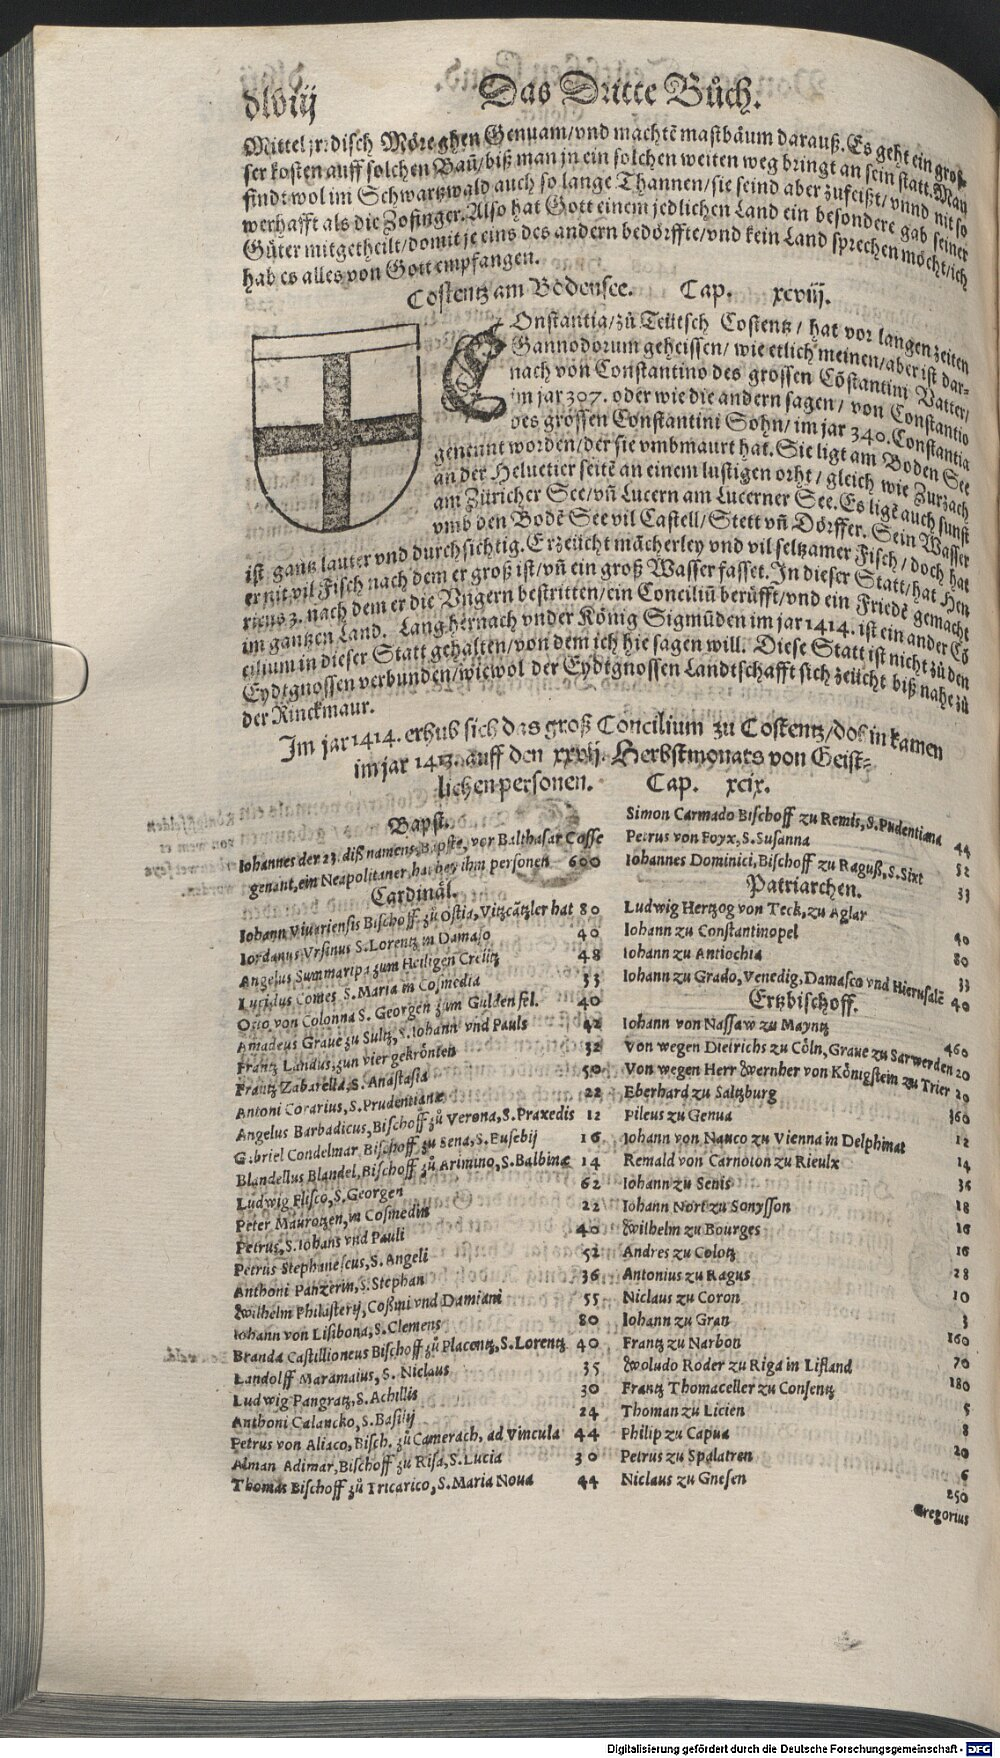 dlviij
Das Dritte Bůch.
Mittel jrrdisch Möre ghen Genuam/vnd machtē mastbäum darauß. Es geht ein gros-
ser kosten auff solchen Baū/biß man jn ein solchen weiten weg bringt an sein statt. Man
findt wol im Schwartzwald auch so lange Thannen/sie seind aber zufeißt/vnnd nit so
werhafft als die Zofinger. Also hat Gott einem jedlichen Land ein besondere gab seiner
Güter mitgetheilt/domit je eins des andern bedörffte/vnd kein Land sprechen möcht/ich
hab es alles von Gott empfangen.
Costentz am Bodensee. Cap. xcviij.
COnstantia/zů Teütsch Costentz/ hat vor langen zeiten
Gannodorum geheissen/ wie etlich meinen/aber ist dar-
nach von Constantino des grossen Cōstantini Vatter/
im jar 307. oder wie die andern sagen/ von Constantio
des grossen Constantini Sohn/ im jar 340. Constantia
genennt worden/der sie vmbmaurt hat. Sie ligt am Boden See
an der Heluetier seitē an einem lustigen orht/ gleich wie Zurzach
am Züricher See/vñ Lucern am Lucerner See. Es ligē auch sunst
vmb den Bodē See vil Castell/ Stett vñ Dörffer. Sein Wasser
ist gantz lauter vnd durchsichtig. Erzeücht mācherley vnd vil seltzamer Fisch/ doch hat
er nit vil Fisch nach dem er groß ist/vñ ein groß Wasser fasset. In dieser Statt/hat Hen
ricus 3. nach dem er die Vngern bestritten/ein Conciliū berüfft/vnd ein Friedē gemacht
im gantzen Land. Lang hernach vnder König Sigmūden im jar 1414. ist ein ander Cō
cilium in dieser Statt gehalten/von dem ich hie sagen will. Diese Statt ist nicht zů den
Eydtgnossen verbunden/wiewol der Eydtgnossen Landtschafft sich zeücht biß nahe zů
der Rinckmaur.
Im jar 1414. erhub sich das groß Concilium zu Costentz/do hin kamen
im jar 1413. auff den xxvij. Herbstmonats von Geist-
lichen personen. Cap. xcix.
Bapst.
Iohannes der 23. diß namens, Bapste, vor Balthasar Cosse
genant, ein Neapolitaner, hat bey ihm personen 600
Cardinäl.
Iohann Viuariensis Bischoff zů Ostia, Vitzcātzler hat 80
Iordanus Vrsinus S. Lorentz in Damaso 40
Angelus Summaripa zum Heiligen Creütz 48
Lucidus Comes S. Maria in Cosmedia 33
Otto von Colonna S. Georgen zum Gulden sel. 40
Amadeus Graue zu Sultz, S. Iohann vnd Pauls 42
Frantz Landus, zun vier gekrönten 32
Frantz Zabarella, S. Anastasia 50
Antoni Corarius, S. Prudentianæ 22
Angelus Barbadicus, Bischoff zů Verona, S. Praxedis 12
Gabriel Condelmar Bischoff zu Sena, S. Eusebij 16
Blandellus Blandel, Bischoff zů Arimino, S. Balbinæ 14
Ludwig Flisco, S. Georgen 62
Peter Maurotzen, in Cosmedin 22
Petrus, S. Iohans vnd Pauli 40
Petrus Stephanescus, S. Angeli 52
Anthoni Panzerin, S. Stephan 36
Wilhelm Philasterij, Coßmi vnd Damiani 55
Iohann von Lisibona, S. Clemens 80
Branda Castillioneus Bischoff zů Placentz, S. Lorentz 40
Landolff Maramaius, S. Niclaus 35
Ludwig Pangratz, S. Achillis 30
Anthoni Calancko, S. Basilij 24
Petrus von Aliaco, Bisch. zů Camerach, ad Vincula 44
Alman Adimar, Bischoff zu Risa, S. Lucia 30
Thomas Bischoff zů Tricarico, S. Maria Noua 44
Simon Carmado Bischoff zu Remis, S. Pudentiana 44
Petrus von Foyx, S. Susanna 52
Iohannes Dominici, Bischoff zu Raguß, S. Sixt 33
Patriarchen.
Ludwig Hertzog von Teck, zu Aglar 40
Iohann zu Constantinopel 80
Iohann zu Antiochia 33
Iohann zu Grado, Venedig, Damasco vnd Hierusalē 40
Ertzbischoff.
Iohann von Nassaw zu Mayntz 460
Von wegen Dietrichs zu Cöln, Graue zu Sarwerden 20
Von wegen Herr Wernher von Königstein zu Trier 20
Eberhard zu Saltzburg 360
Pileus zu Genua 12
Iohann von Nauco zu Vienna in Delphinat 14
Remald von Carnoton zu Rieulx 36
Iohann zu Senis 18
Iohann Nort zu Sonysson 16
Wilhelm zu Bourges 16
Andres zu Colotz 28
Antonius zu Ragus 10
Niclaus zu Coron 3
Iohann zu Gran 160
Frantz zu Narbon 70
Woludo Roder zu Riga in Lifland 180
Frantz Thomaceller zu Consentz 5
Thoman zu Licien 8
Philip zu Capua 20
Petrus zu Spalatren 6
Niclaus zu Gnesen 250
Gregorius
Digitalisierung gefördert durch die Deutsche Forschungsgemeinschaft - DFG